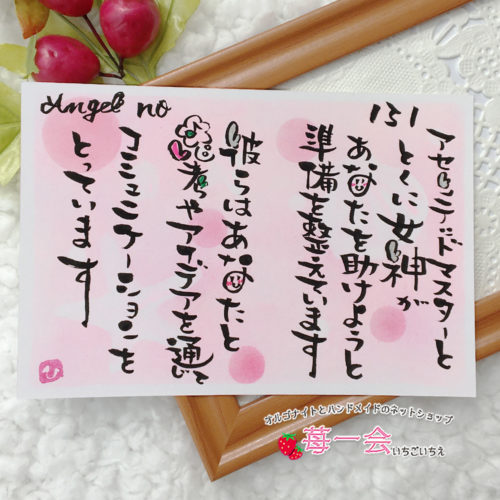 Angel no
131
アセンデッドマスターと
とくに女神が
あなたを助けようと
準備を整えています
彼らはあなたと
思考やアイデアを通じて
コミュニケーションを
とっています
オルゴナイトとハンドメイドのネットショップ
苺一会 いちごいちえ